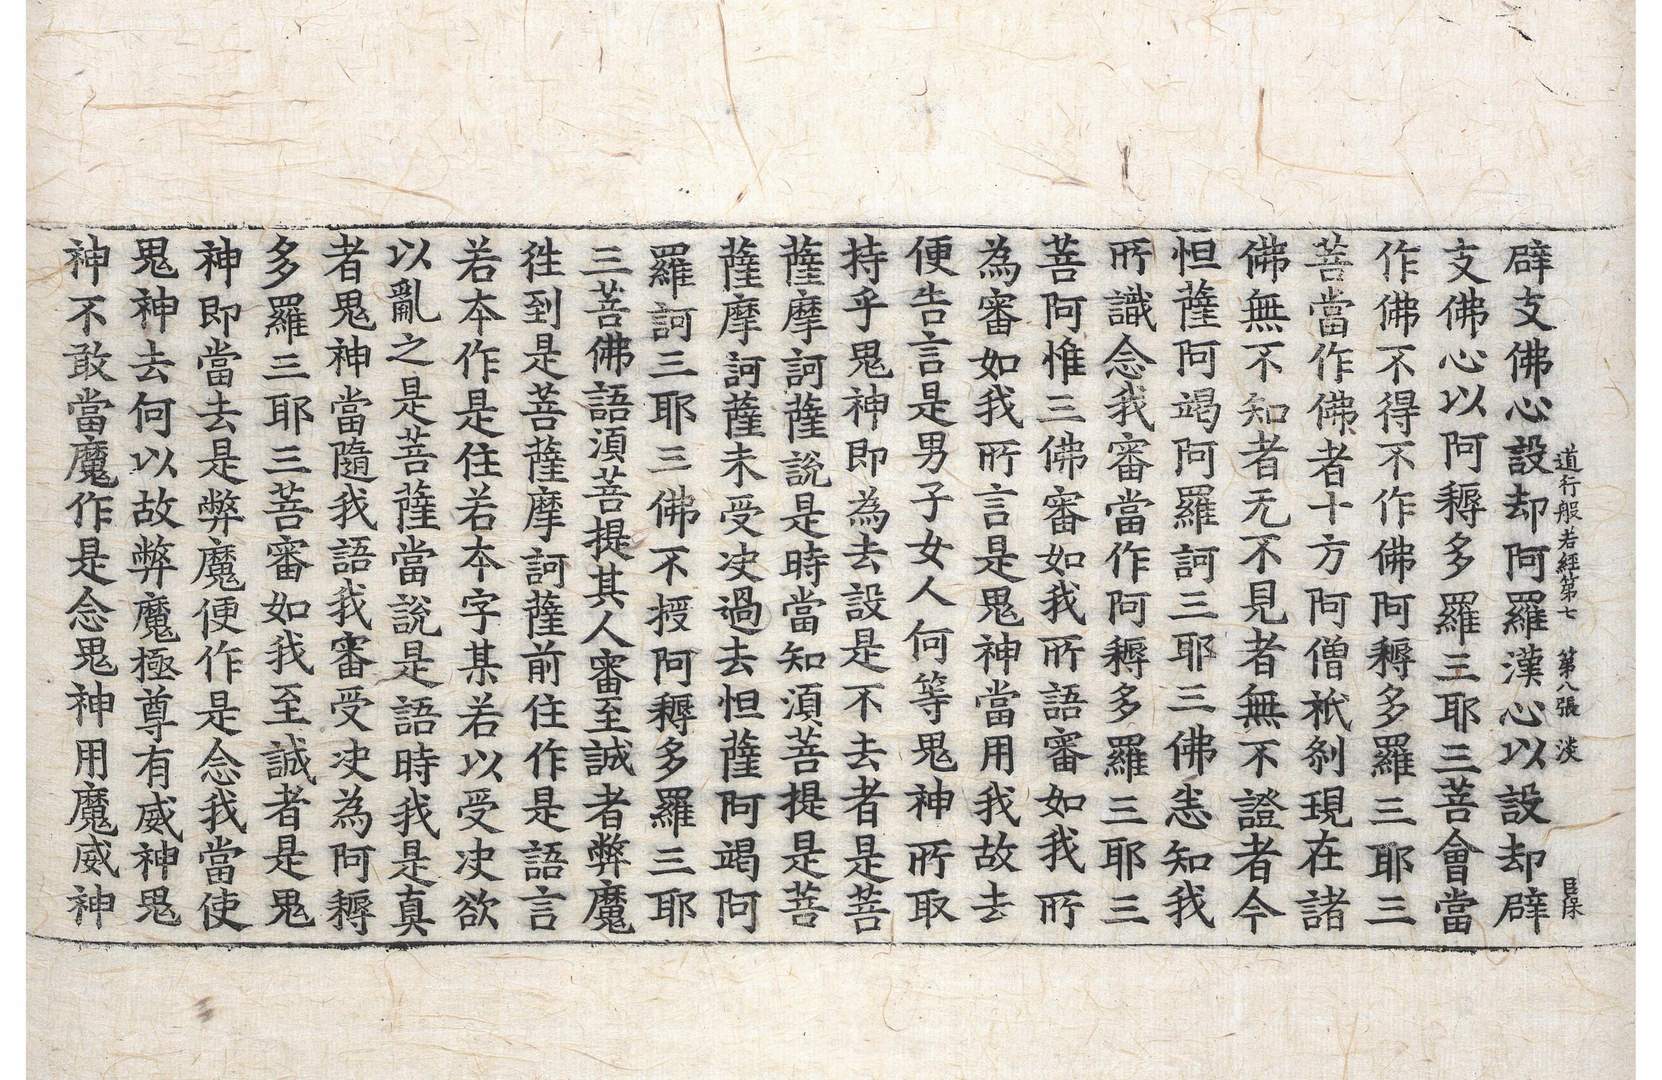 道行般若經第七　第八張　淡
辟支佛心設却阿羅漢心以設却辟
支佛心以阿耨多羅三耶三菩會當
作佛不得不作佛阿耨多羅三耶三
菩當作佛者十方阿僧祇刹現在諸
佛無不知者无不見者無不證者今
怛薩阿竭阿羅訶三耶三佛悉知我
所識念我審當作阿耨多羅三耶三
菩阿惟三佛審如我所語審如我所
為審如我所言是鬼神當用我故去
便告言是男子女人何等鬼神所取
持乎鬼神即為去設是不去者是菩
薩摩訶薩說是時當知須菩提是菩
薩摩訶薩未受决過去怛薩阿竭阿
羅訶三耶三佛不授阿耨多羅三耶
三菩佛語須菩提其人審至誠者弊魔
徃到是菩薩摩訶薩前住作是語言
若本作是住若本字某若以受决欲
以亂之是菩薩當說是語時我是真
者鬼神當隨我語我審受决為阿耨
多羅三耶三菩審如我至誠者是鬼
神即當去是弊魔便作是念我當使
鬼神去何以故弊魔極尊有威神鬼
神不敢當魔作是念鬼神用魔威神